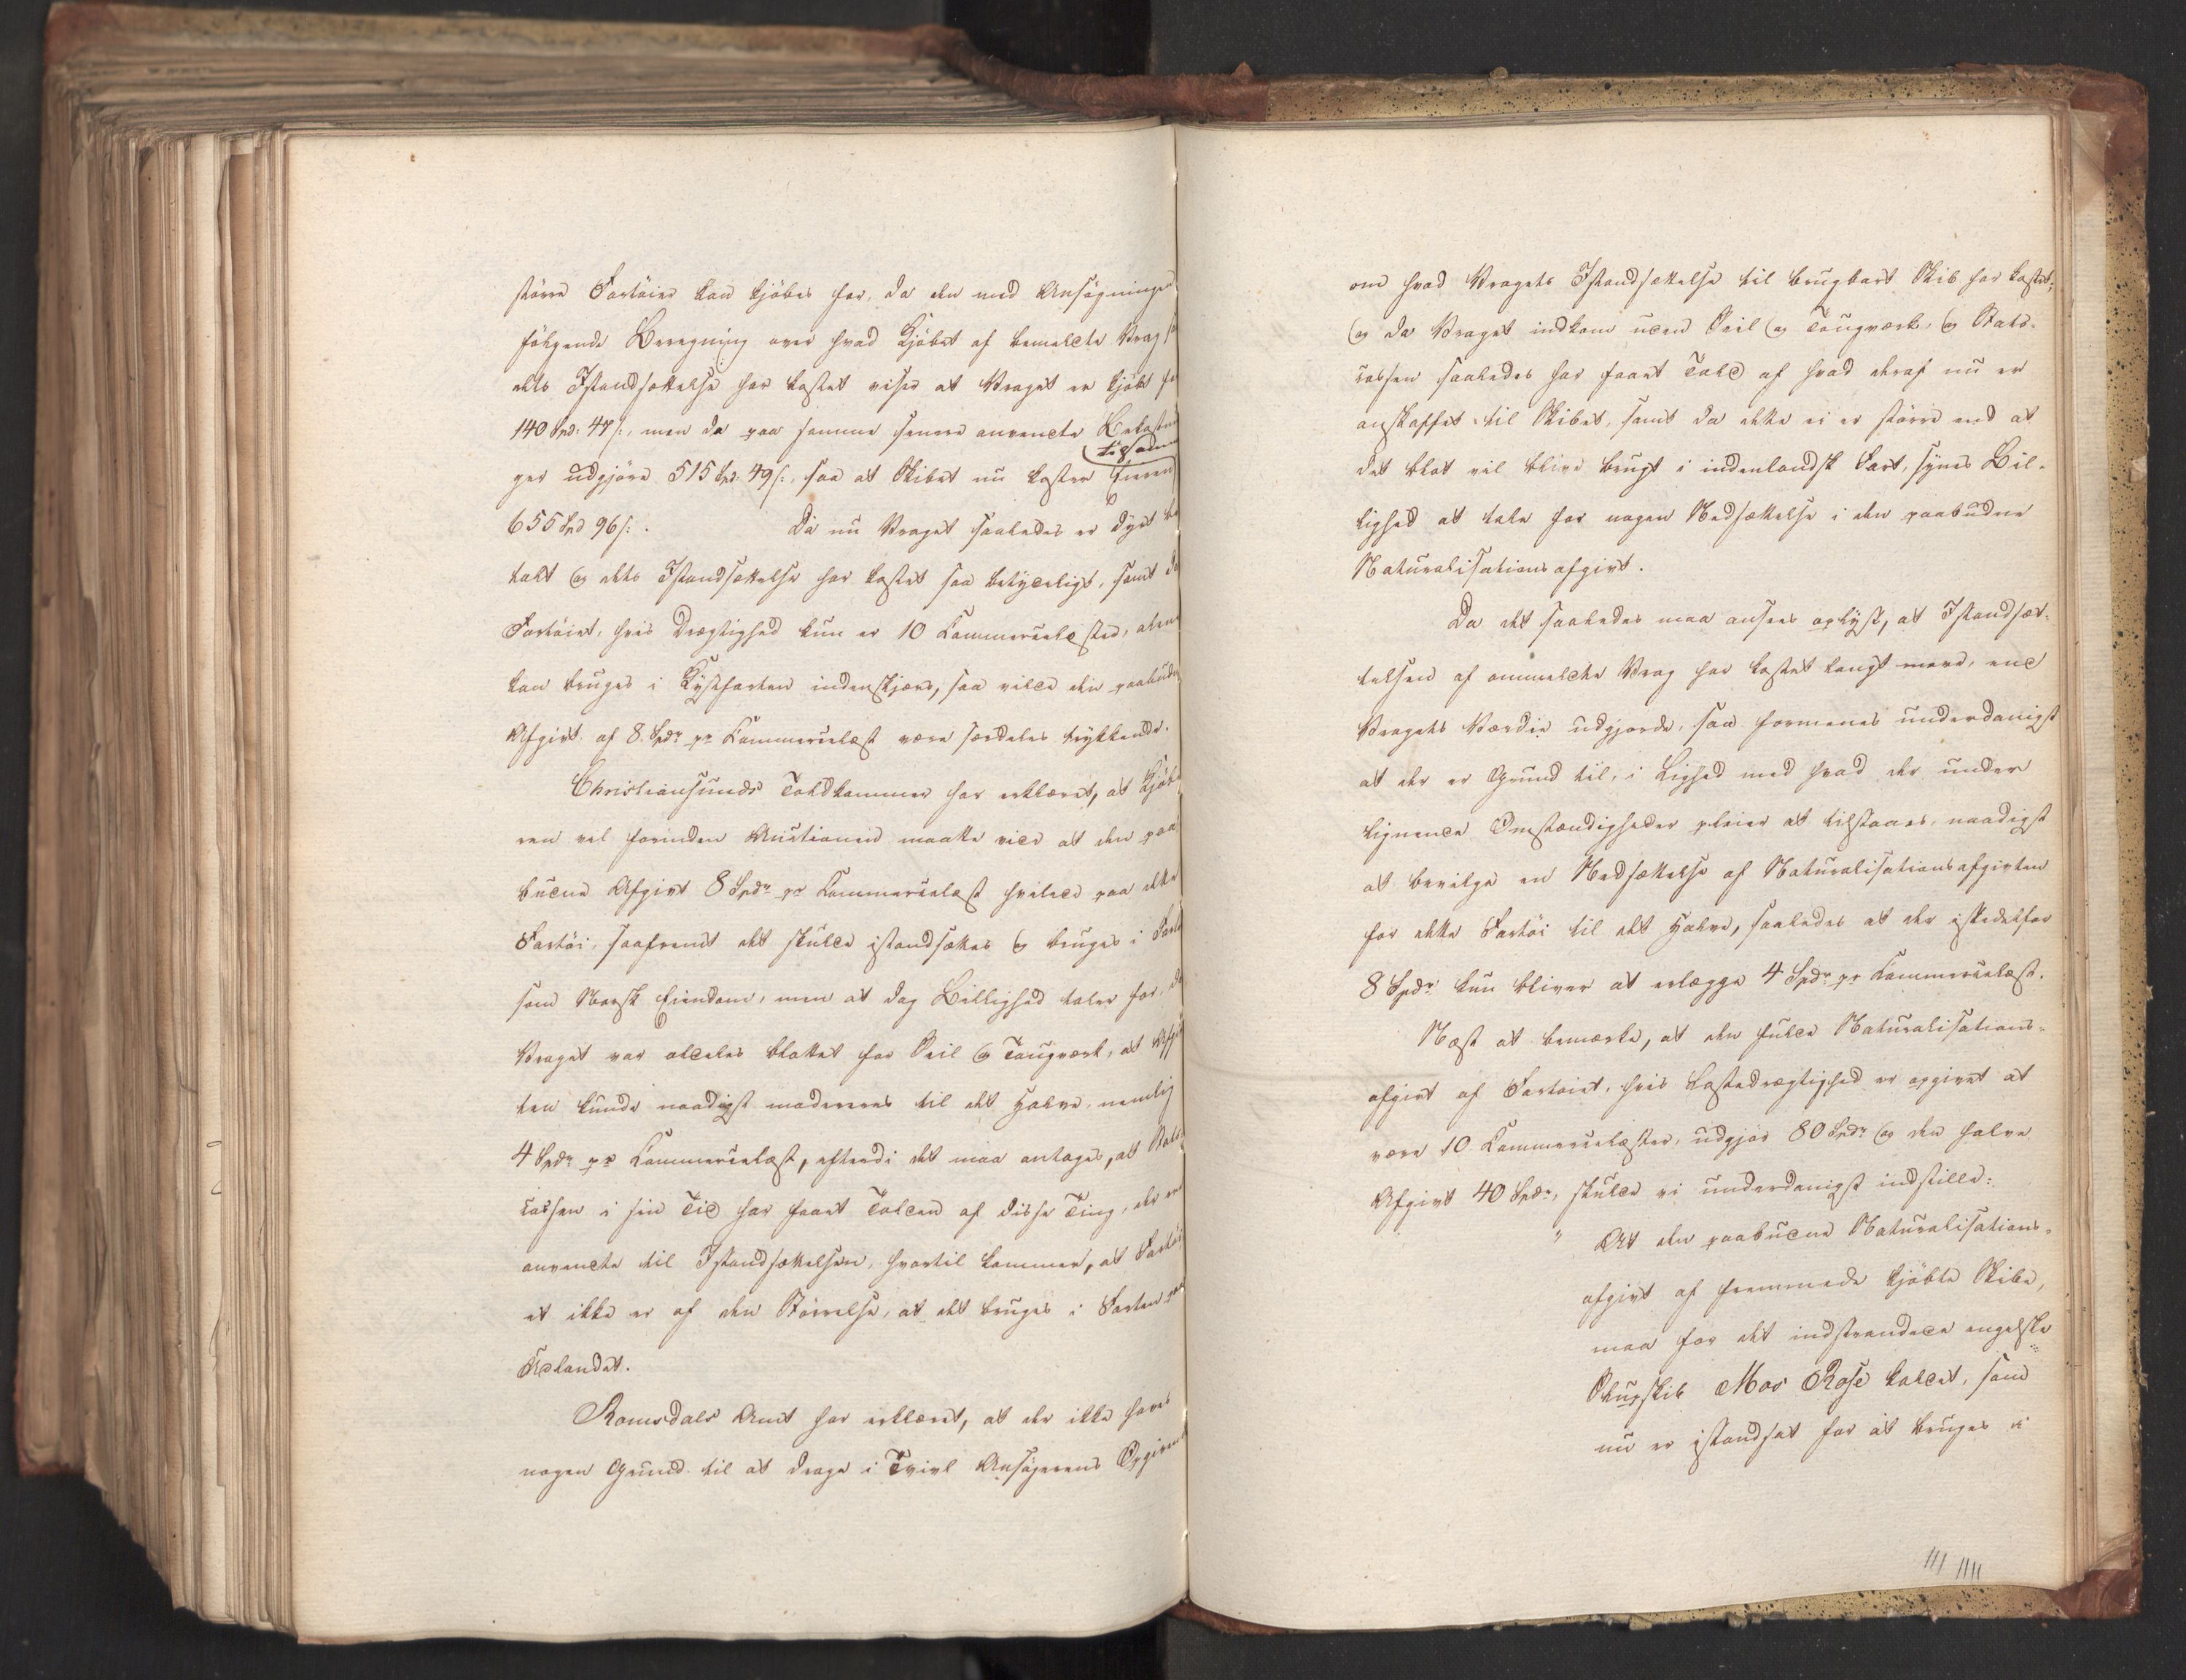 større Fartøier kan kjöbes for, da den med Ansøgningen
følgende Beregning over hvad Kjøbet af bemeldte Vrag
dets Istandsættelse har kostet viser at Vraget er kjøbt
140 Spd: 47 s:, men da paa samme senere anvendte Bekostnin
tilsam
ger udgjøre 515 Spd: 49 s:, saa at Skibet nu koster Eieren
655 Spd 96 s:. Da nu Vraget saaledes er dyrt be
talt og dets Istandsættelse har kostet saa betydeligt, samt da
Fartøiet, hvis Drægtighed kun er 10 Commercelæster, alene
kan bruges i Kystfarten indenskjærs, saa vilde den paabudne
Afgivt af 8 Spdr pr Commercelæst være særdeles trykkende.
Christiansunds Toldkammer har erklæret, at Kjøbe
ren vel forinden Auctionen maatte vide at den paa
budne Afgivt 8 Spdr pr Commercelæst hvilede paa dette
Fartøi, saafremt det skulde istandsættes og bruges i Fart
som Norsk Eiendom, men at dog Billighed taler for, da
Vraget var aldeles blottet for Seil og Tougværk, at Afgiv
ten kunde naadigst modereres til det Halve, nemlig
4 Spdr pr Commercelæst, efterdi det maa antages, at Stats
cassen i sin Tid har faaet Tolden af disse Ting, der ere
anvendte til Istandsættelsen, hvortil kommer, at Fartøi
et ikke er af den Størrelse, at det bruges i Farten paa
Udlandet.
Romsdals Amt har erklæret, at der ikke haves
nogen Grund til at drage i Tvivl Ansøgerens Opgivende
om hvad Vragets Istandsættelse til brugbart Skib har kostet,
og da Vraget indkom uden Seil og Tougværk, og Stats-
cassen saaledes har faaet Told af hvad deraf nu er
anskaffet til Skibet, samt da dette ei er større end at
det blot vil blive brugt i indenlandsk Fart, synes Bil-
lighed at tale for nogen Nedsættelse i den paabudne
Naturalisationsafgivt.
Da det saaledes maa ansees oplyst, at Istandsæt-
telsen af ommeldte Vrag har kostet langt mere, end
Vragets Værdie udgjorde, saa formenes underdanigst
at der er Grund til, i Lighed med hvad der under
lignende Omstændigheder pleier at tilstaaes, naadigst
at bevilge en Nedsættelse af Naturalisationsafgivten
for dette Fartøi til det Halve, saaledes at der istedetfor
8 Spdr kun bliver at erlægge 4 Spdr pr Commercelæst.
Næst at bemærke, at den fulde Naturalisations-
afgivt af Fartøiet, hvis Læstedrægtighed er opgivet at
være 10 Commercelæster, udgjør 80 Spdr og den halve
Afgivt 40 Spdr, skulde vi underdanigst indstille:
" At den paabudne Naturalisations-
afgivt af fremmede kjøbte Skibe,
maa for det indstrandede engelske
Slupskib Mos Rose kaldet, som
nu er istandsat for at bruges i